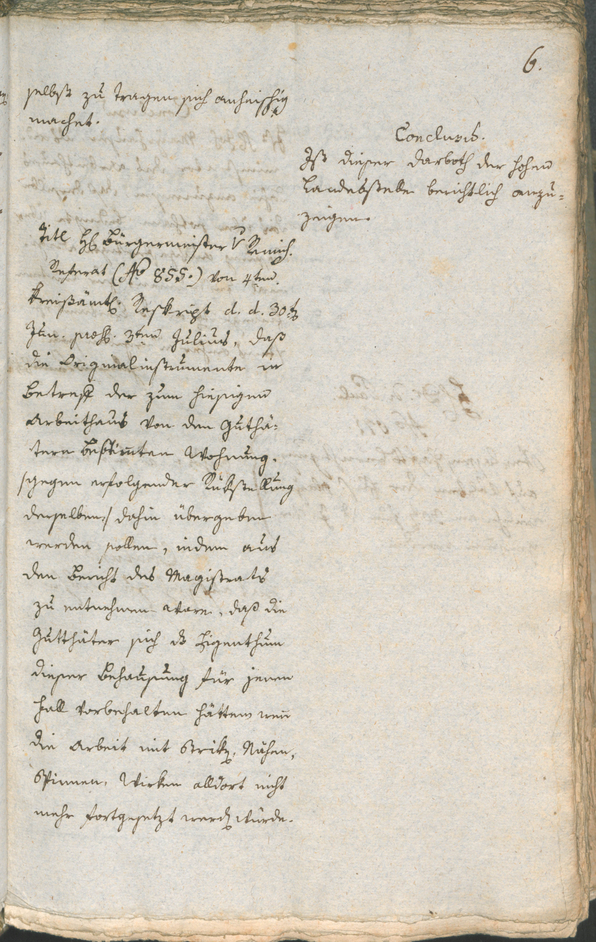 6.
selbst zu tragen sich anheischig
machet.
Conclusis.
Ist dieser Darboth der hohen
Landesstelle berichtlich anzu-
zeigen.
Titl H: Bürgermeister v
Referat (No 855.) von 4ten
Kreisämtl. Reskript d. d. 30t
Jun. praes. 3ten Julius, daß
die Originalinstrumente in
Betreff der zum hiesigen
Arbeithaus von den Guthä-
tern bestimten Wohnung.
/:gegen erfolgender Rükstellung
derselben:/ dahin übergeben
werden sollen, indem aus
den Bericht des Magistrats
zu entnehmen ware, daß die
Gutthäter sich das Eigenthum
dieser Behausung für jenen
Fall vorbehalten hätten wen
die Arbeit mit Strik, Nähen,
Spinnen, Wirken alldort nicht
mehr fortgesetzt werd würde.